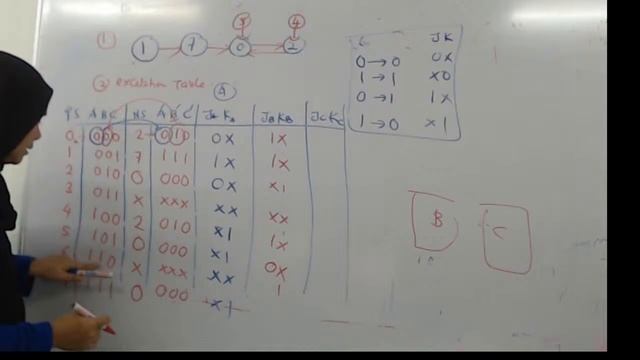 ① 1 → 7 → 0 → 2
5 4
② excitation Table
④
PS A B C NS A' B' C' JA KA JB KB JC KC
0 000 2 010 0X 1X
1 001 7 111 1X 1X
2 010 0 000 0X X1
3 011 X XXX XX XX
4 100 2 010 X1 1X
5 101 0 000 X1 0X
110 X XXX XX
11 0 000 X1 1
JK
0→0 0X
1→1 X0
0→1 1X
1→0 X1
B C